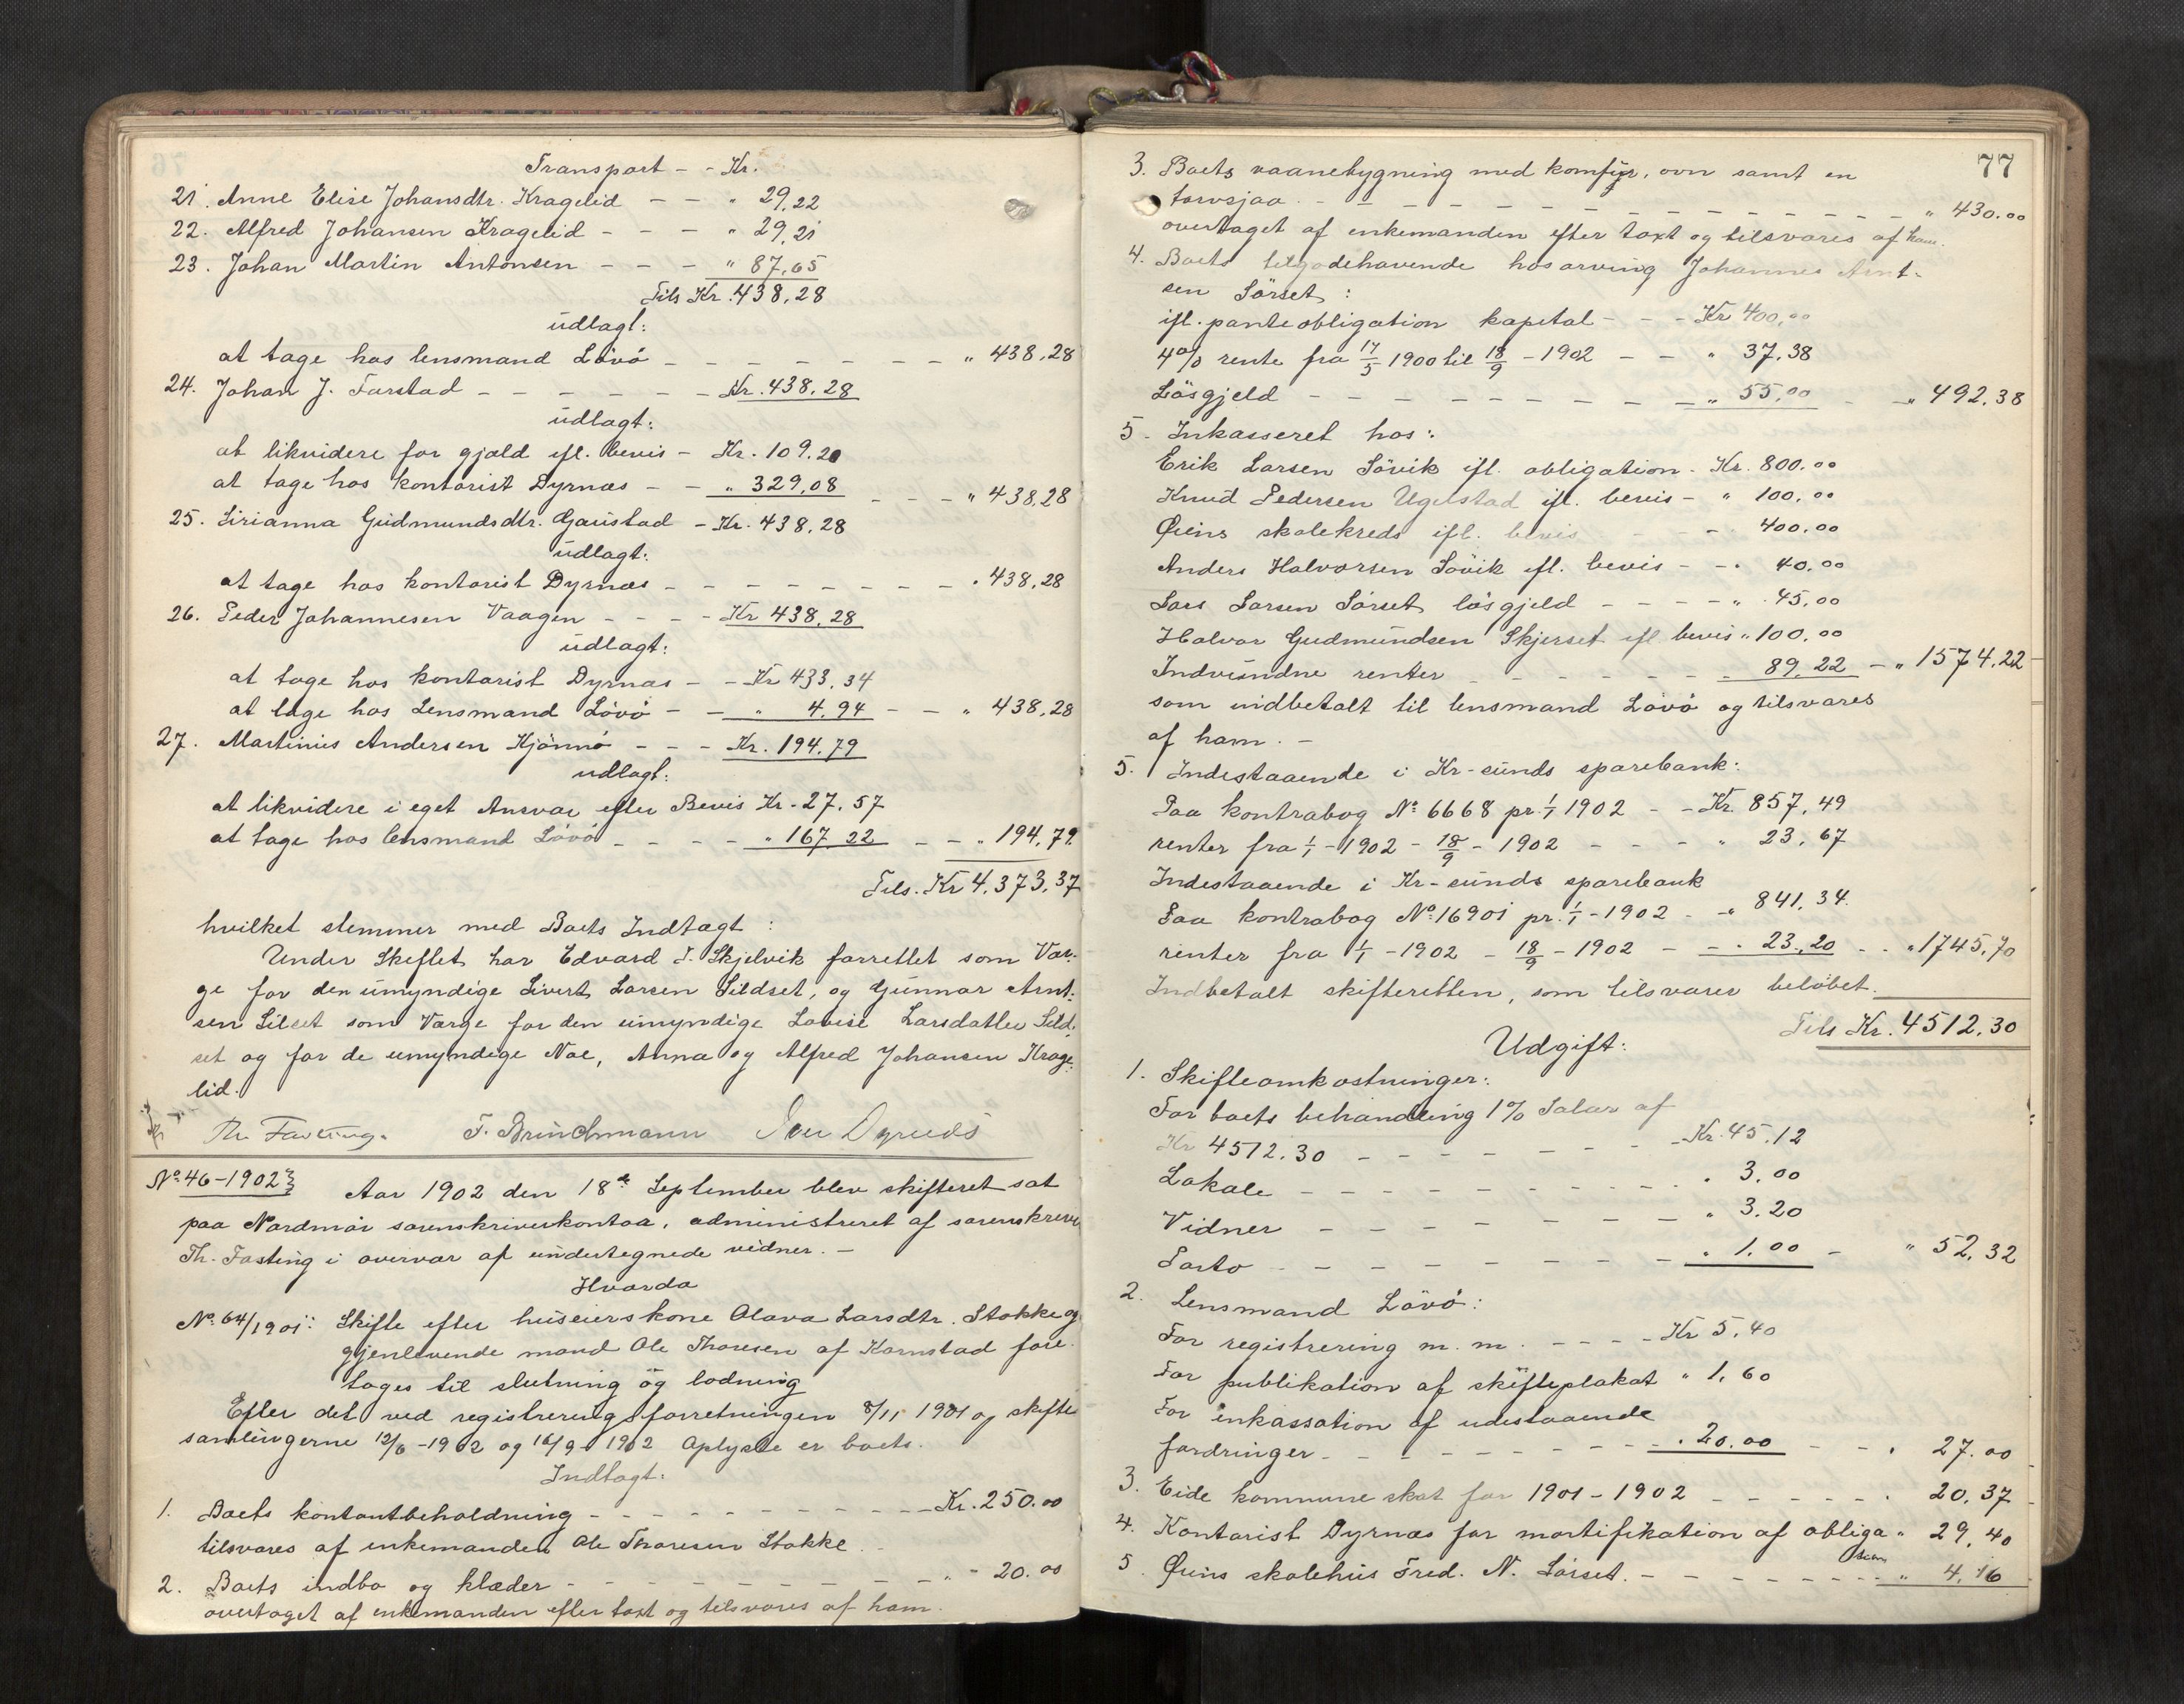 Transport - - Kr.
21. Anne Elise Johansdtr. Kragelid - - " 29,22
22. Alfred Johansen Kragelid - - - " 29,21
23. Johan Martin Antonsen - - - " 87,65
Tils Kr. 438,28
udlagt:
at tage hos lensmand Lövö - - - - - - - " 438,28
24. Johan J. Farstad - - - - - - Kr. 438,28
udlagt:
at likvidere for gjæld ifl. bevis - Kr. 109,20
at tage hos kontorist Dyrnæs - - " 329,08 - - - " 438,28
25. Sirianna Gudmundsdtr. Gaustad - Kr. 438,28
udlagt:
at tage hos kontorist Dyrnæs - - - - - - - - - . 438,28
26. Peder Johannesen Vaagen - - - - Kr 438,28
udlagt:
at tage hos kontorist Dyrnæs - - Kr 433,34
at tage hos Lensmand Lövö - - " 4,94 - - " 438,28
27. Martinus Andersen Hjönnö - - - Kr. 194,79
udlagt:
at likvidere i eget Ansvar efter Bevis Kr - 27,57
at tage hos lensmand Lövö - - - - " 167,22 - - " 194,79
Tils. Kr 4,373,37
hvilket stemmer med Boets Indtægt:
Under Skiftet har Edvard J. Skjelvik forrettet som Vær-
ge for den umyndige Sivert Larsen Sildset, og Gunnar Arnt-
sen Silset som Værge for den umyndige Lovise Larsdatter Sild-
set og for de umyndige Noe, Anna og Alfred Johansen Krage-
lid.
Th. Fasting. F. Brinchmann Iver Dyrnæs
No 46-1902} Aar 1902 den 18de September blev skifteret sat
paa Nordmör sorenskriverkontor, administreret af sorenskriver
Th. Fasting i overvær af undertegnede vidner. -
Hvorda
No. 64/1901: Skifte efter huseierskone Olava Larsdtr. Stokke og
gjenlevende mand Ole Thoresen af Kornstad fore-
toges til slutning og lodning
Efter det ved registreringsforretningen 8/11 1901 og skifte-
samlingerne 12/6 -1902 og 16/9 1902 Oplyste er boets.
Indtægt:
1. Boets kontantbeholdning - - - - - - - - - Kr. 250.00
tilsvares af enkemanden Ole Thoresen Stokke.
2. Boets indbo og klæder - - - - - - - - - " - 20.00
overtaget af enkemanden efter taxt og tilsvares af ham.
77
3. Boets vaanebygning med komfyr, ovn samt en
torvsjaa. - - - - - - - - - - - - " 430.00
overtaget af enkemanden efter taxt og tilsvares af ham.
4. Boets tilgodehavende hos arving Johannes Arnt-
sen Sörset:
ifl. panteobligation kapital - - - Kr 400,00
4% rente fra 17/5 1900 til 18/9 - 1902 - - " 37,38
Lösgjeld - - - - - - - - - - " 55,00 - " 492,38
5. Inkasseret hos:
Erik Larsen Sövik ifl. obligation - Kr. 800.00
Knud Pedersen Ugelstad ifl. bevis - " 100,00
Öiens skolekreds ifl. bevis - - 400.00
Anders Halvorsen Sövik ifl. bevis - - . 40.00
Lars Larsen Sörset, lösgjeld - - - - " 45,00
Halvor Gudmundsen Skjerset ifl bevis " 100.00
Indvundne renter - - - - - - 89,22 - " 1574,22
som indbetalt til lensmand Lövö og tilsvares
af ham. -
5. Indestaaende i Kr-sunds sparebank:
Paa kontrabog No 6668 pr. 1/1 1902 - - Kr. 857,49
renter fra 1/1 - 1902 - 18/9 - 1902 - - - " 23,67
Indestaaende i Kr-sunds sparebank
Paa kontrabog No. 16901 pr. 1/1 - 1902 - " 841,34
renter fra 1/1 - 1902 - 18/9 - 1902 - - . 23,20 - - " 1745,70
Indbetalt skifteretten, som tilsvarer belöbet.
Tils Kr. 4512.30
Udgift:
1. Skifteomkostninger:
For boets behandling 1% Salær af
Kr 4512.30 - - - - - - - Kr. 45.12
Lokale - - - - - - - - - . 3,00
Vidner - - - - - - - - " 3.20
Porto - - - - - - - - . 1,00 - " 52,32
2. Lensmand Lövö:
For registrering m. m. - - - - Kr 5,40
For publikation af skifteplakat " 1,60
For inkassation af udestaaende
fordringer - - - - - - - - . 20.00 - - . 27.00
3. Eide kommune skat for 1901 - 1902 - - - - - . 20,37
4. Kontorist Dyrnæs for mortifikation af obliga- " 29,40
tion
5. Öiens skolehus Fred. N. Sörset. - - - - - - - " 4,16